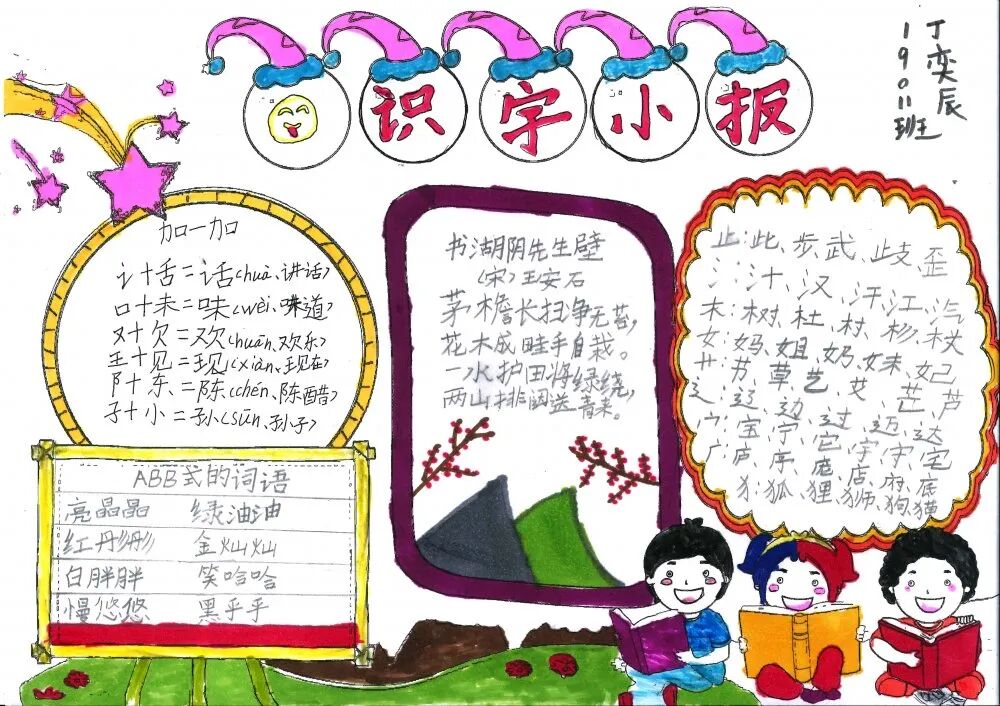 识字小报
丁奕辰
19011班
加一加
讠十舌=话(huà、讲话)
口十未=味(wèi、味道)
又十欠=欢(huān、欢乐)
王十见=现(xiàn、现在)
阝十东=陈(chén、陈醋)
子十小=孙(sūn、孙子)
ABB式的词语
亮晶晶 绿油油
红彤彤 金灿灿
白胖胖 笑哈哈
慢悠悠 黑乎乎
书湖阴先生壁
(宋)王安石
茅檐长扫净无苔,
花木成畦手自栽。
一水护田将绿绕,
两山排闼送青来。
止:此、步、武、歧、歪
氵:汁、汉、汗、江、汽
木:树、杜、村、杉、枝
女:妈、姐、奶、妹、妃
艹:节、草、艺、艾、芒、芦
辶:辽、边、过、迈、达
宀:宝、宁、它、宇、字、宅
广:庐、序、底、店、府、底
犭:狐、狸、狮、狗、猫